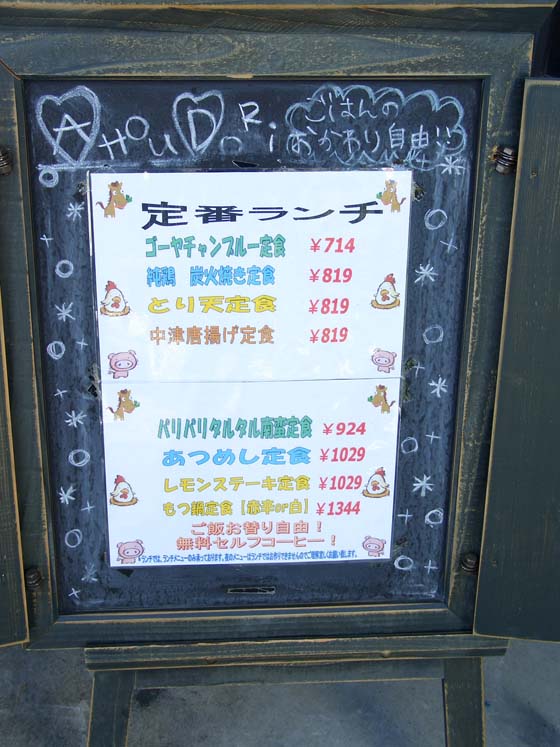 AHOUDORi
ごはんの
おかわり自由!!
定番ランチ
ゴーヤチャンプルー定食 ¥714
純鶏 炭火焼き定食 ¥819
とり天定食 ¥819
中津唐揚げ定食 ¥819
パリパリタルタル南蛮定食 ¥924
あつめし定食 ¥1029
レモンステーキ定食 ¥1029
もつ鍋定食【赤辛or白】 ¥1344
ご飯お替り自由！
無料セルフコーヒー！